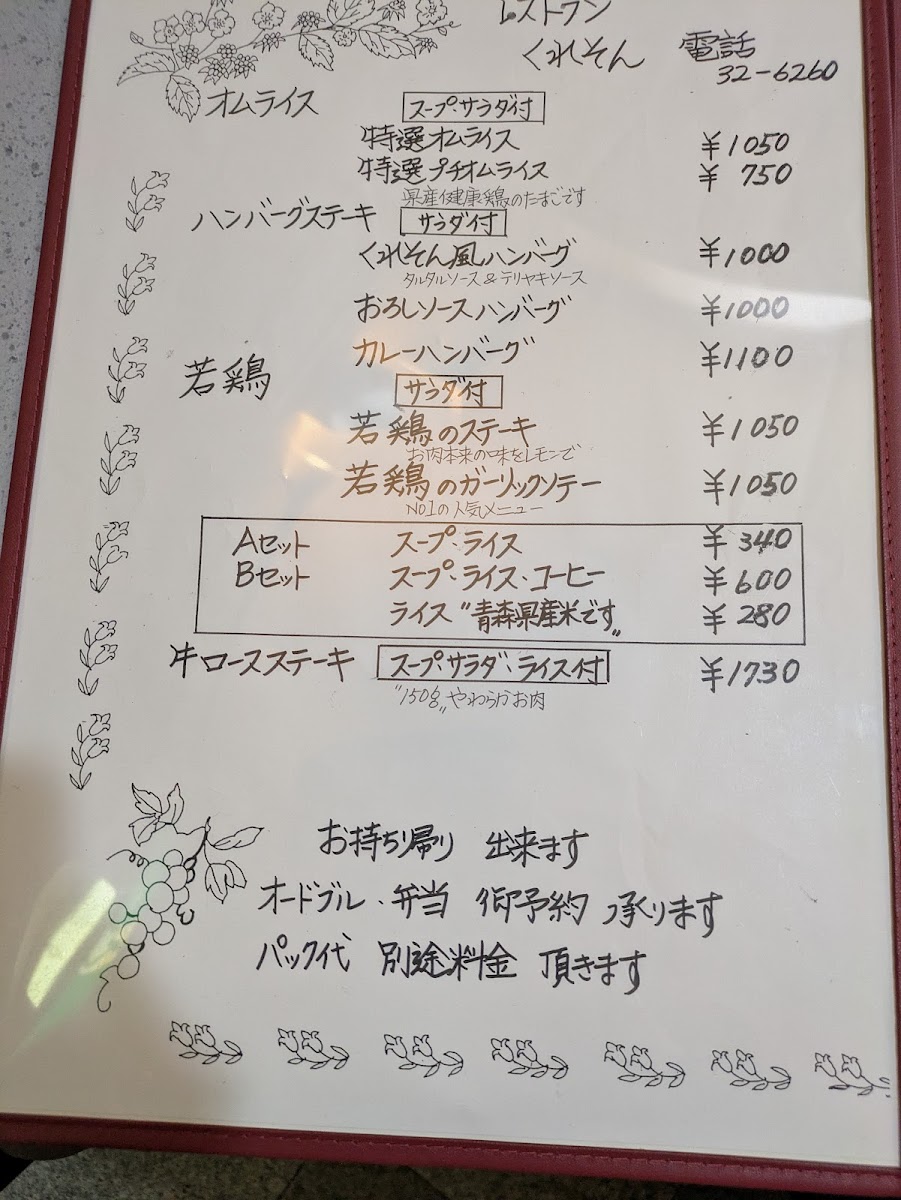 レストラン
くれそん 電話
32-6260
オムライス スープ・サラダ付
特選オムライス ¥1050
特選プチオムライス ¥750
県産健康鶏のたまごです
ハンバーグステーキ サラダ付
くれそん風ハンバーグ ¥1000
タルタルソース&テリヤキソース
おろしソースハンバーグ ¥1000
カレーハンバーグ ¥1100
若鶏 サラダ付
若鶏のステーキ ¥1050
お肉本来の味をレモンで
若鶏のガーリックソテー ¥1050
NO1の人気メニュー
Aセット スープ・ライス ¥340
Bセット スープ・ライス・コーヒー ¥600
ライス "青森県産米です" ¥280
牛ロースステーキ スープ・サラダ・ライス付 ¥1730
"150g"やわらかお肉
お持ち帰り 出来ます
オードブル・弁当 御予約 承ります
パック代 別途料金 頂きます